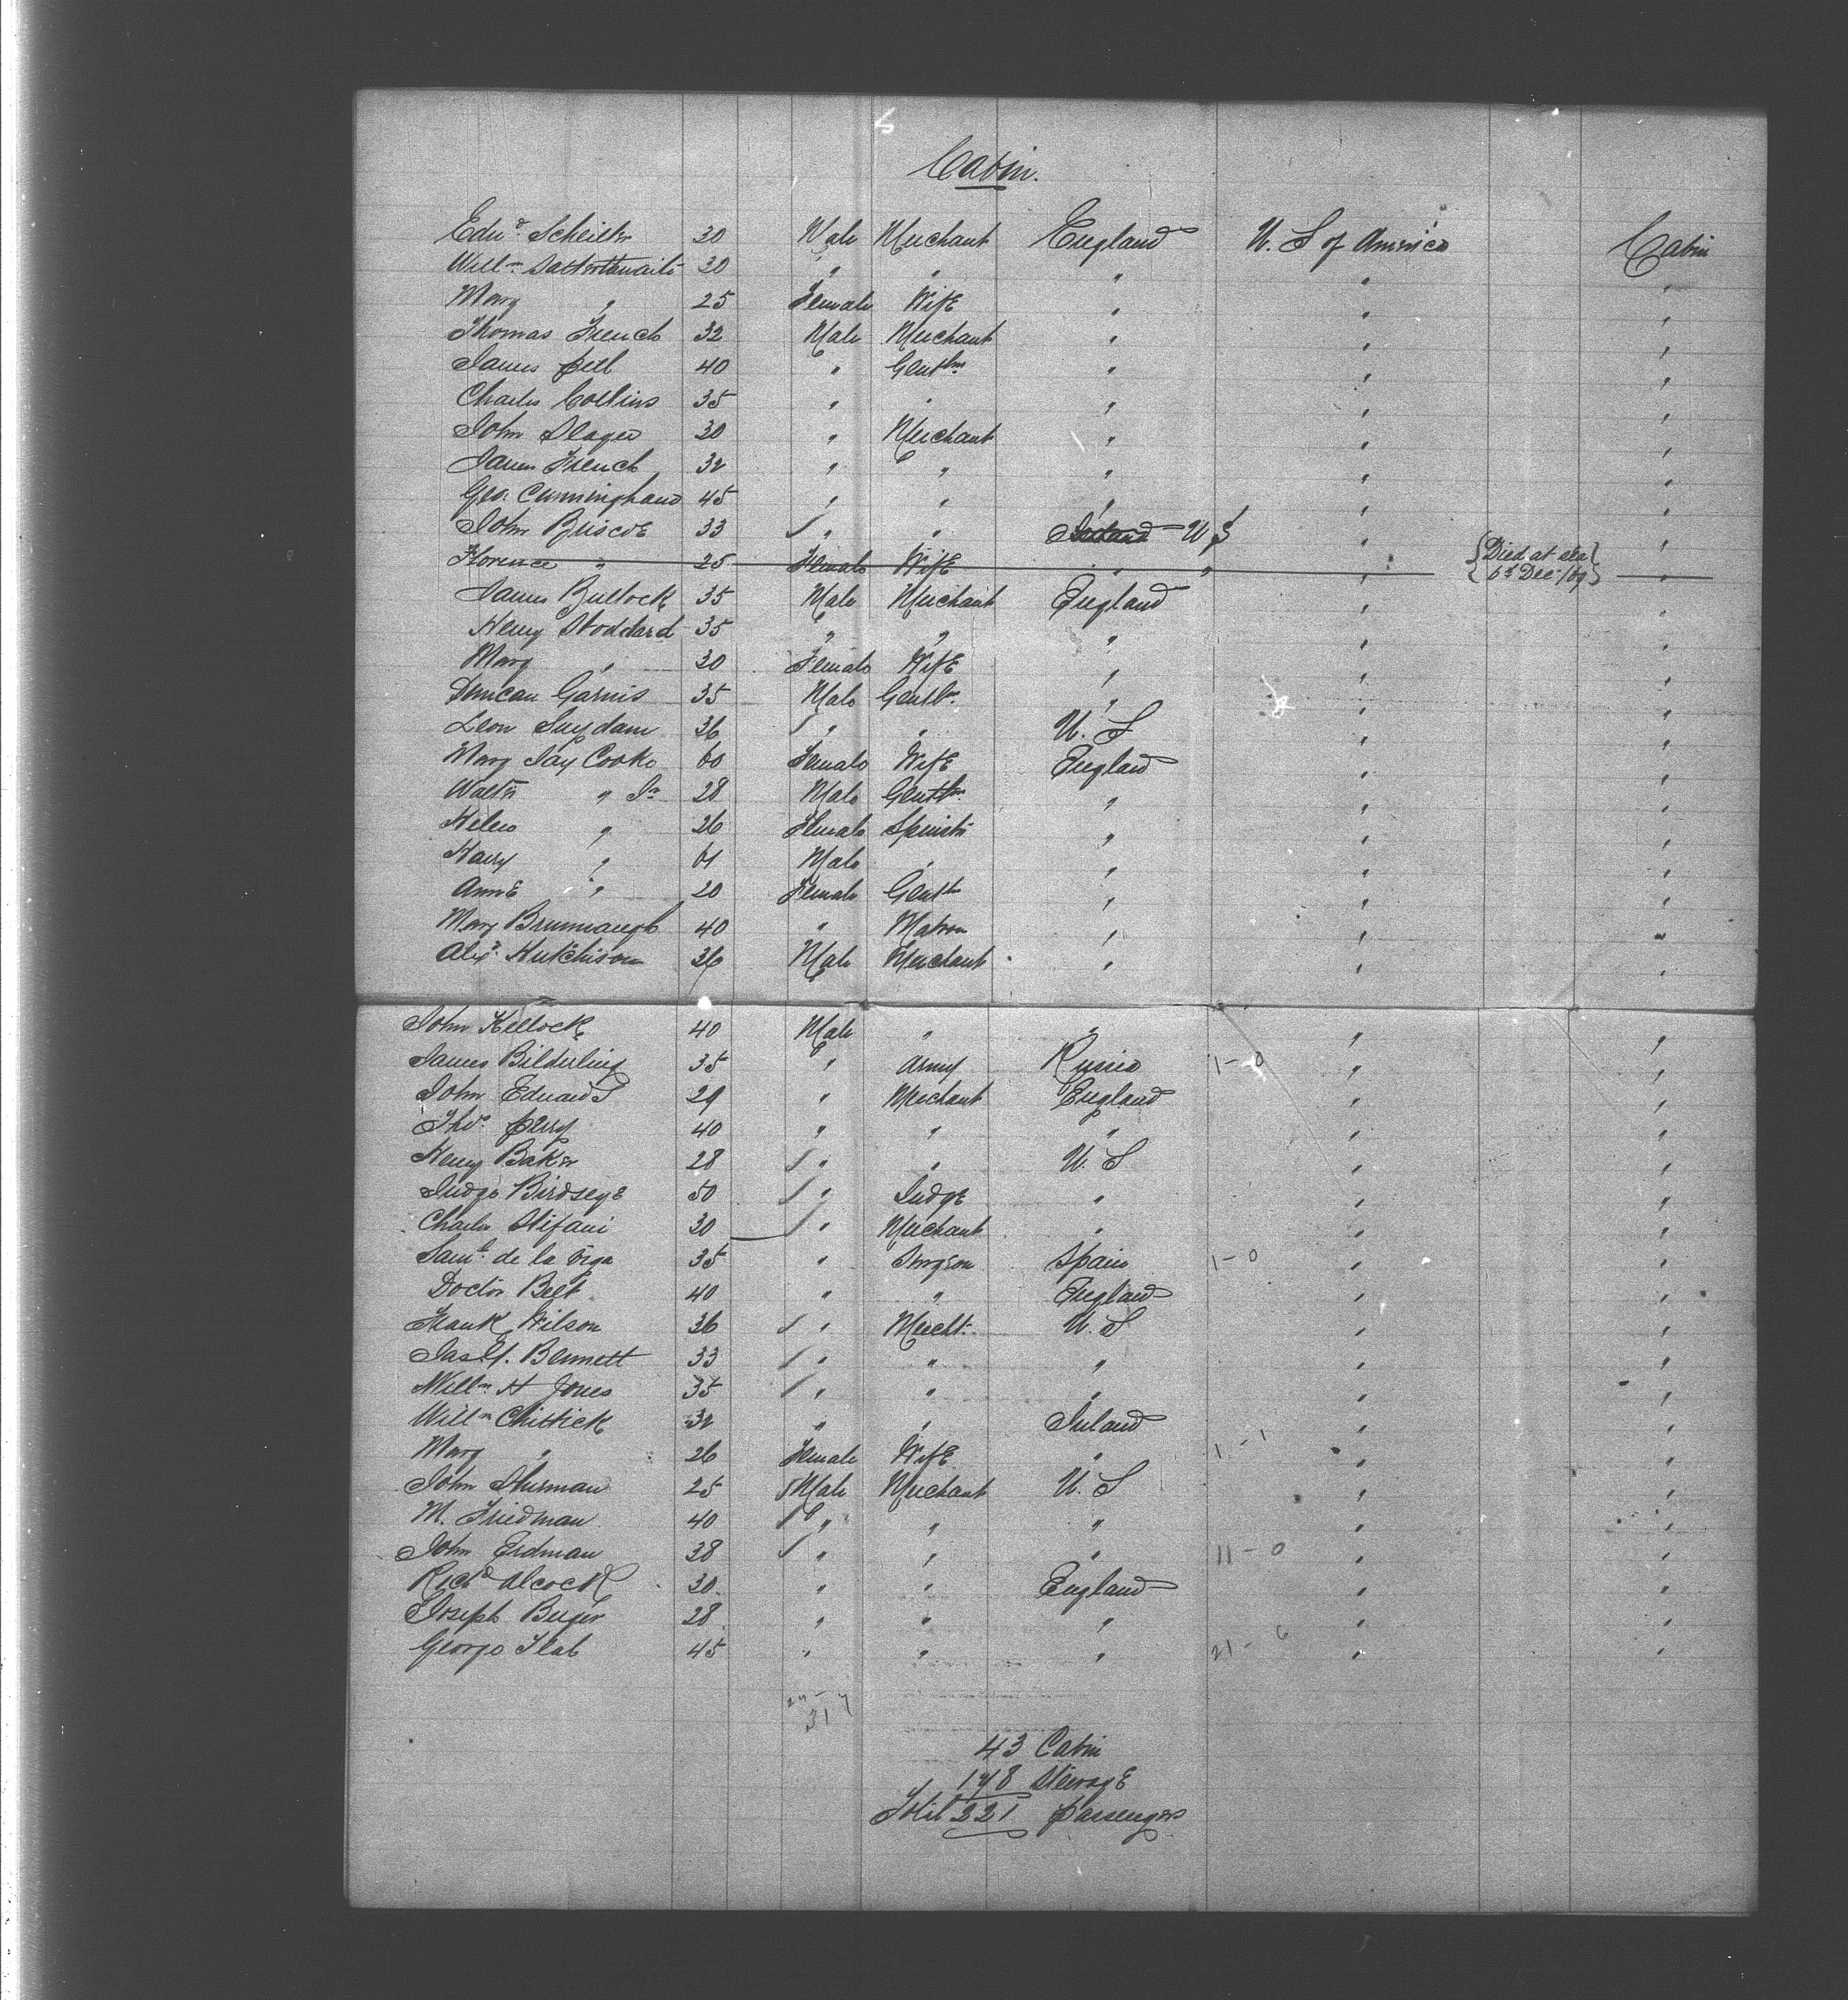 Cabin.
Edwd. Scheiltr 30 Male Merchant England U. S of America Cabin
Willm Satterthwaite 30 " " " " "
Mary " 25 Female Wife " " "
Thomas French 32 Male Merchant " " "
James Peel 40 " Gentlm. " " "
Charles Collins 35 " " " " "
John Slager 30 " Merchant " " "
James French 32 " " " " "
Geo. Cunningham 45 " " " " "
John Briscoe 33 " " Ireland U S " "
Florence " 25 Female Wife " " " {Died at sea "
6th Dec./69}
James Bullock 35 Male Merchant England " "
Henry Stoddard 35 " " " " "
Mary " 30 Female Wife " " "
Duncan Garnis 35 Male Gentlm. " " "
Leon Suydam 36 " " U. S " "
Mary Jay Cooke 60 Female Wife England " "
Walter " Jr 28 Male Gentlm. " " "
Helen " 26 Female Spinstr " " "
Harry " 61 Male " " " "
Anne " 20 Female Gentlm " " "
Mary Brumnaugh 40 " Matron " " "
Alexr. Hutchison 36 Male Merchant " " "
John Kellock 40 Male " " " "
James Bilderling 35 " Army Russia 1-0 " "
John Edwards 29 " Merchant England " "
Thos. Perry 40 " " " " "
Henry Baker 28 " " U. S " "
Judge Birdseye 50 " Judge " " "
Charles Stifani 30 " Merchant " " "
Saml. de la Vega 35 " Surgeon Spain 1-0 " "
Doctor Belt 40 " " England " "
Frank Wilson 36 " Mercht. U. S " "
Jas. G. Bennett 33 " " " " "
Willm H Jones 35 " " " " "
Willm Chittick 32 " " Ireland " "
Mary " 26 Female Wife " 1-1 " "
John Sherman 25 Male Merchant U. S " "
M. Friedman 40 " " " " "
John Erdman 38 " " " 11-0 " "
Richd Alcock 30 " " England " "
Joseph Buger 28 " " " " "
George Flab 45 " " " 21-6 " "
24-7
31
43 Cabin
178 Steerage
Total 221 Passengers